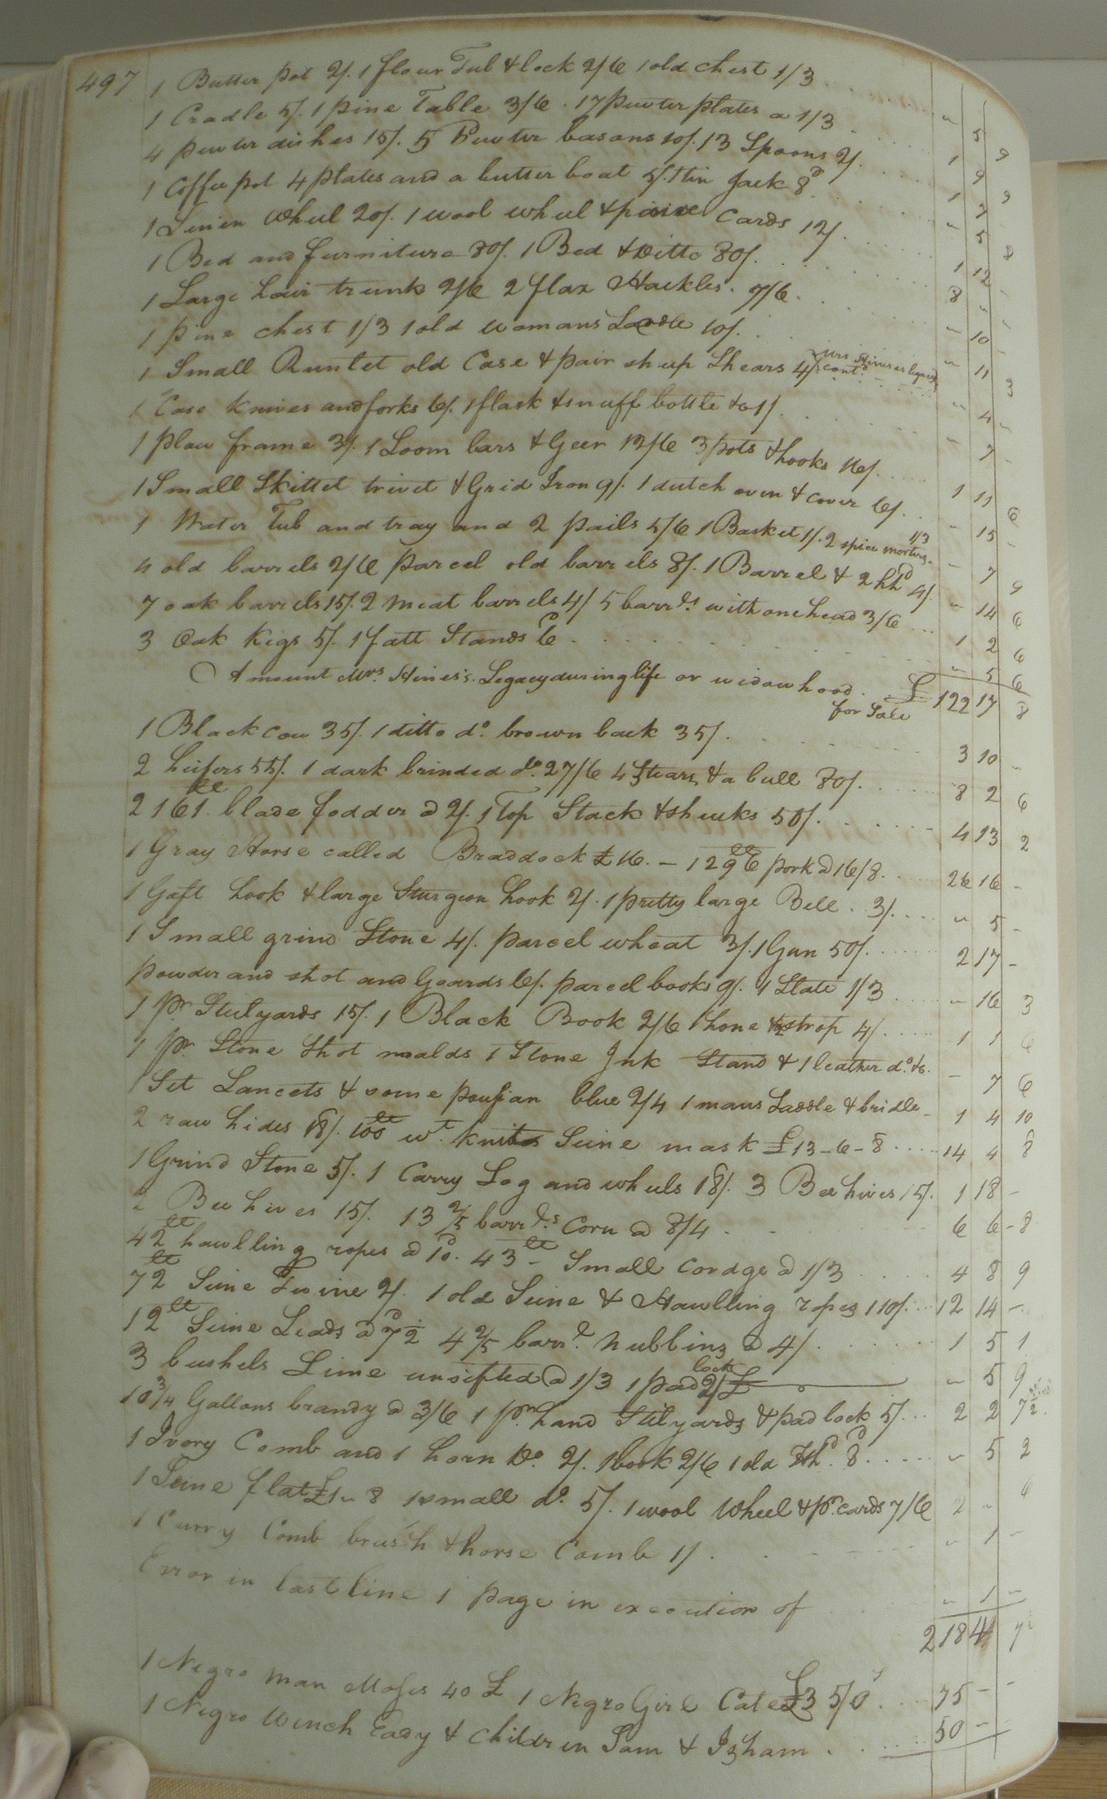 497
1 Butter pot 2/. 1 flour Tub & lock 2/6 1 old chest 1/3 . . . " 5 9
1 Cradle 5/. 1 pine Table 3/6 . 17 pewter plates a 1/3 . . 1 9 9
4 pewter dishes 15/. 5 Pewter basons 10/. 13 Spoons 2/. . . 1 7 "
1 Coffee pot 4 plates and a butter boat 5/. 1 tin Jack 8d . . " 5 8
1 Linin Wheel 20/. 1 wool wheel & paire Cards 12/. . . 1 12 "
1 Bed and furniture 80/. 1 Bed & Ditto 80/. . . 8 " "
1 Large hair trunk 2/6 2 flax Hackles . 7/6 . . " 10 "
1 pine chest 1/3 1 old womans Saddle 10/. . . " 11 3
1 Small Runlet old Case & pair sheep Shears 4/. . . " 4 "
1 Case Knives and forks 6/. 1 flask & snuff bottle &c 1/. . . " 7 "
1 plow frame 3/. 1 Loom bars & Geer 12/6 3 pots & hooks 16/. . . 1 11 6
1 Small Skillet trivet & Grid Iron 9/. 1 dutch oven & cover 6/. . . " 15 "
1 Water Tub and tray and 2 pails 5/6 1 Basket 1/. 2 spice mortars 1/3 " 7 9
4 old barrels 2/6 parcel old barrels 8/. 1 Barrel & 2 hhd 4/. " 14 6
7 oak barrels 15/. 2 meat barrels 4/ 5 barrls with one head 3/6 . . 1 2 6
3 Oak Kegs 5/. 1 fatt Stands 6d . . . " 5 6
Amount Mrs. Hines's Legacy during life or widowhood . £ 122 17 8
for Sale
1 Black cow 35/. 1 ditto do. brown back 35/. . . 3 10 "
2 heifers 55/. 1 dark brinded do. 27/6 4 Stears & a bull 80/. . . 8 2 6
2 161 ll blade fodder a 2/. 1 Top Stack & shucks 50/. . . 4 13 2
1 Gray Horse called Braddock £16. – 1296 ll pork a 16/8 . . 26 16 "
1 Gaft hook & large Sturgeon hook 2/. 1 pretty large Bell . 3/. . . " 5 "
1 Small grind Stone 4/. parcel wheat 3/. 1 Gun 50/. . . 2 17 "
powder and shot and Goards 6/. parcel books 9/. 1 Slate 1/3 . . " 16 3
1 pr. Stilyards 15/. 1 Black Book 2/6 1 hone & strop 4/ . . 1 1 6
1 pr. Stone Shot moalds 1 Stone Ink Stand & 1 leather do. &c. " 7 6
1 Set Lancets & some pousian blue 2/4 1 mans Saddle & bridle 1 4 10
2 raw hides 18/. 100 ll wt. knitt Seine mask £13-6-8 . . . 14 4 8
1 Grind Stone 5/. 1 Carry Log and wheels 18/. 3 Bee hives 15/. 1 18 "
2 Bee hives 15/. 13 2/5 barrls Corn a 8/4 . . 6 6 - 8
42 ll hawlling ropes a 10d. 43 ll Small Cordge a 1/3 . . 4 8 9
72 ll Seine Twine 2/. 1 old Seine & Hawlling ropes 110/. . . 12 14 "
12 ll Seine Leads a 7d½ 4 2/5 barrl. nubbins a 4/ . . . 1 5 1
3 bushels Lime unsifted a 1/3 1 pad lock 2/ " 5 9
10 3/4 Gallons brandy a 3/6 1 pr. hand Stilyards & pad lock 5/. . . 2 2 7½
1 Ivory Comb and 1 horn Do. 2/. 1 book 2/6 1 old Hhd. 8d . . . " 5 2
1 Seine flat £1 " 8 1 small do. 5/. 1 wool Wheel & pr. cards 7/6 2 "
1 Curry Comb brush & horse Comb 1/ . . . " 1 "
Error in last line 1 page in execution of " 1 "
218 4 7½
1 Negro man Moses 40 £ 1 Negro Girl Cate £35/0s . . 75 " "
1 Negro Wench Eady & Children Sam & Isham . . . 50 "